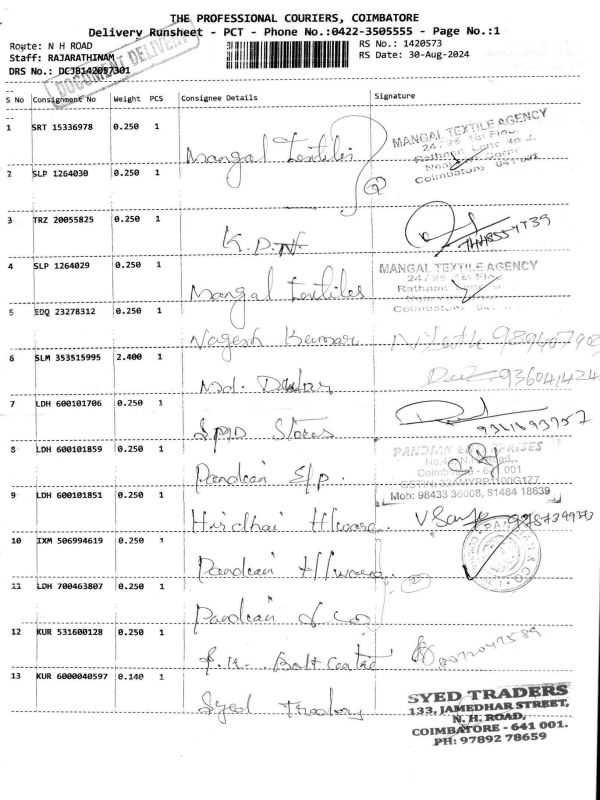 THE PROFESSIONAL COURIERS, COIMBATORE
Delivery Runsheet - PCT - Phone No.:0422-3505555 - Page No.:1
Route: N H ROAD
RS No.: 1420573
Staff: RAJARATHINAM
RS Date: 30-Aug-2024
DRS No.: DCJB142057301
DOCUMENT DELIVERY
S No Consignment No Weight PCS Consignee Details Signature
1 SRT 15336978 0.250 1
Mangal Textiles
MANGAL TEXTILE AGENCY
Coimbatore. 641 001
2 SLP 1264030 0.250 1
3 TRZ 20055825 0.250 1
K.P.N
4 SLP 1264029 0.250 1
Mangal Textiles
MANGAL TEXTILE AGENCY
5 EDQ 23278312 0.250 1
Nagesh Kumar
6 SLM 353515995 2.400 1
7 LDH 600101706 0.250 1
Stores
8 LDH 600101859 0.250 1
Pandian E/p.
PANDIAN ENTERPRISES
Mob: 98433 36008, 81484 18639
9 LDH 600101851 0.250 1
Hridhai H/ware
10 IXM 506994619 0.250 1
Pandian H/ware
11 LDH 700463807 0.250 1
Pandian & Co
12 KUR 531600128 0.250 1
Bolt Centre
13 KUR 6000040597 0.140 1
Syed Traders
SYED TRADERS
133, JAMEDHAR STREET,
N. H. ROAD,
COIMBATORE - 641 001.
PH: 97892 78659